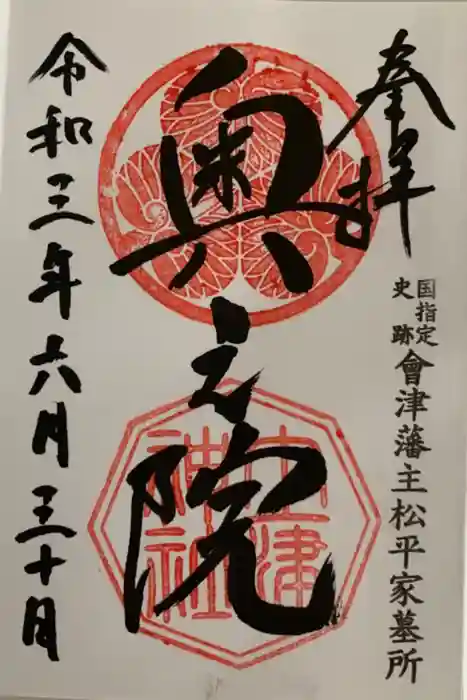 奉拝
国指定
史跡
會津藩主松平家墓所
奥之院
土津
神社
令和三年六月三十日